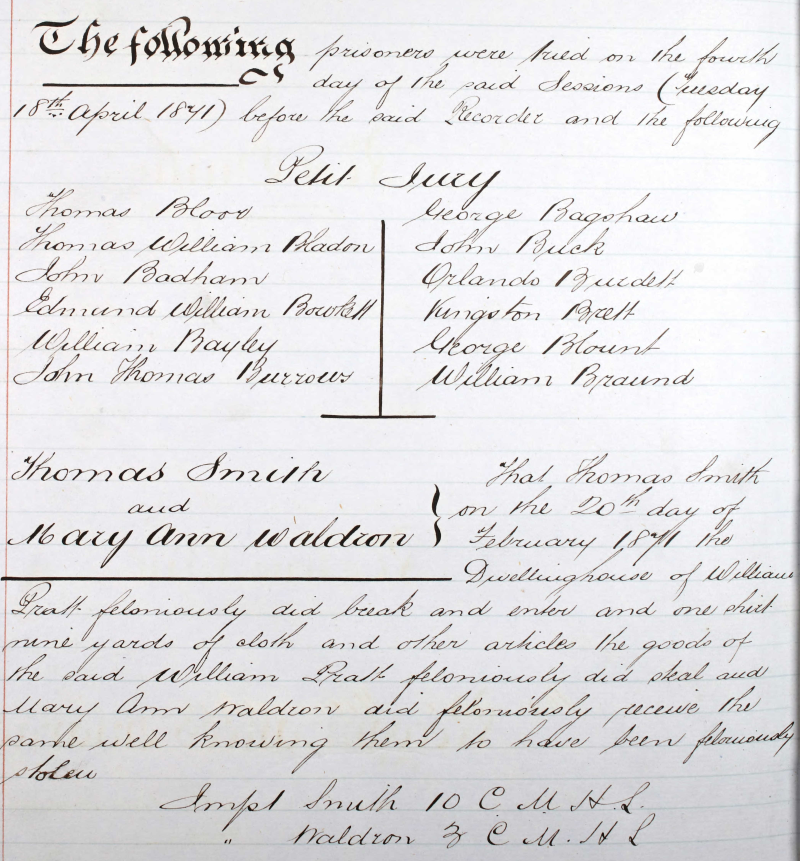 The following prisoners were tried on the fourth
day of the said Sessions (Tuesday
18th April 1871) before the said Recorder and the following
Petit Jury
Thomas Bloor
Thomas William Bladon
John Badham
Edmund William Bowkett
William Bayley
John Thomas Burrows
George Bagshaw
John Buck
Orlando Burdett
Kingston Brett
George Blount
William Braund
Thomas Smith
and
Mary Ann Waldron
That Thomas Smith
on the 20th day of
February 1871 the
Dwellinghouse of William
Pratt feloniously did break and enter and one shirt
nine yards of cloth and other articles the goods of
the said William Pratt feloniously did steal and
Mary Ann Waldron did feloniously receive the
same well knowing them to have been feloniously
stolen
Impt Smith 10 C M H L.
" Waldron 3 C M. H L